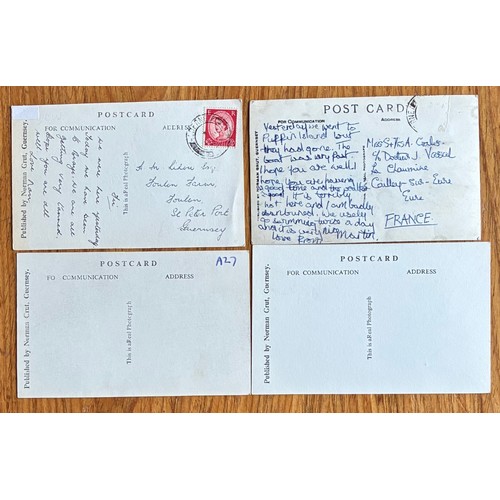 POSTCARD
FOR COMMUNICATION ADDRESS
Published by Norman Grut, Guernsey.
This is a Real Photograph
We are here yesterday
Today we have been
to George we are all
getting very
Hope you are all
well
Love from
Esq.
Farm,
St Peter Port
Guernsey
POST CARD
FOR COMMUNICATION ADDRESS
Yesterday we went to
Puffin Island but
they had gone. The
boat was very fast
I hope you are well I
hope you are having
a good time and the
is good it is terribly
hot here and I am badly
sunburned. We usely
go swimming twice a day
and it is very nice
Love from Martin.
Miss S & A.
c/o Docteur J.
La Chaumine
Eure
FRANCE.
POSTCARD
FO COMMUNICATION ADDRESS
A27
Published by Norman Grut, Guernsey.
This is a Real Photograph
POSTCARD
FO COMMUNICATION ADDRESS
Published by Norman Grut, Guernsey.
This is a Real Photograph